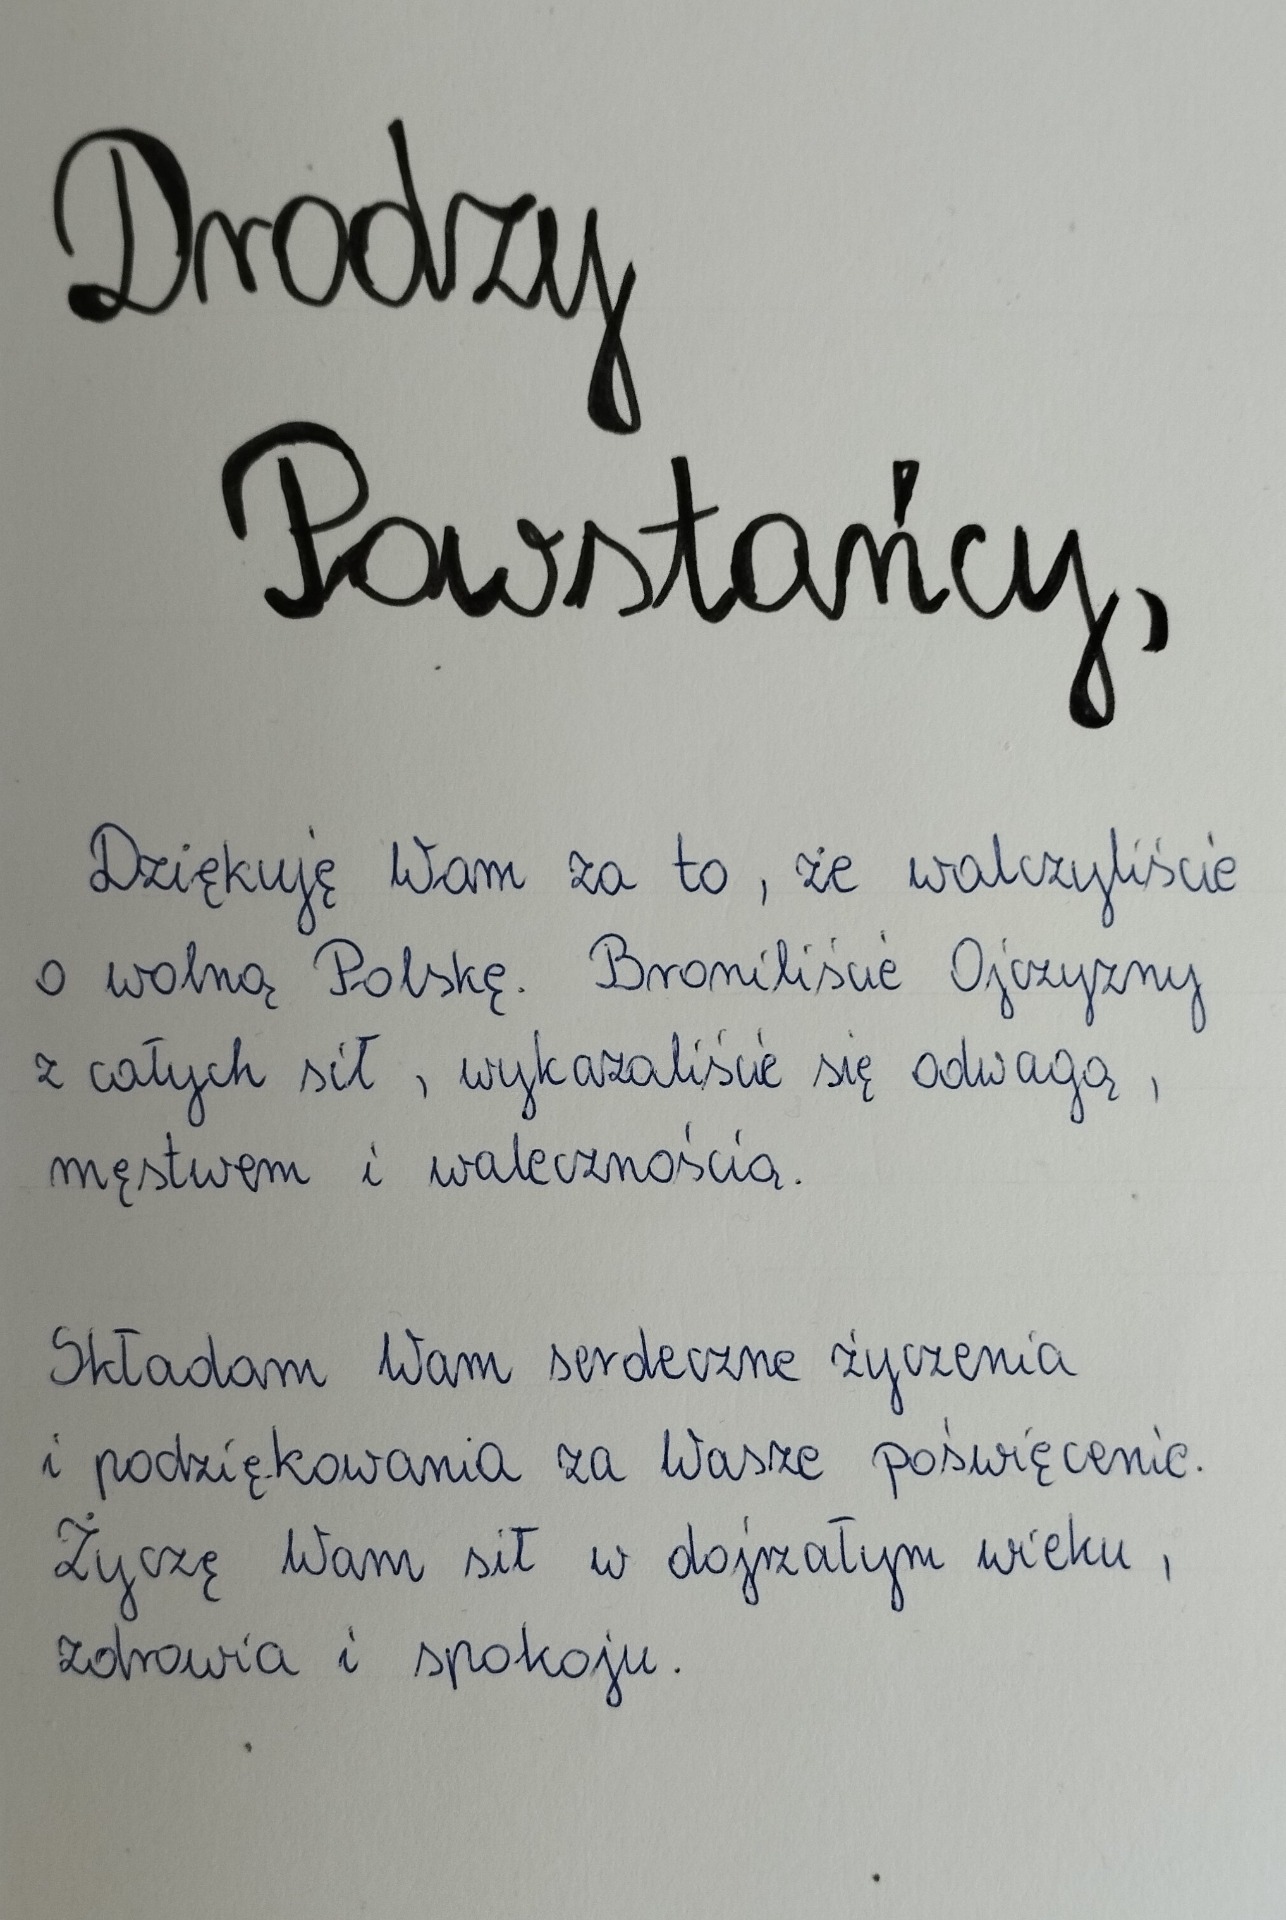 Drodzy
Powstańcy,
Dziękuję Wam za to, że walczyliście
o wolną Polskę. Broniliście Ojczyzny
z całych sił, wykazaliście się odwagą,
męstwem i walecznością.
Składam Wam serdeczne życzenia
i podziękowania za Wasze poświęcenie.
Życzę Wam sił w dojrzałym wieku,
zdrowia i spokoju.